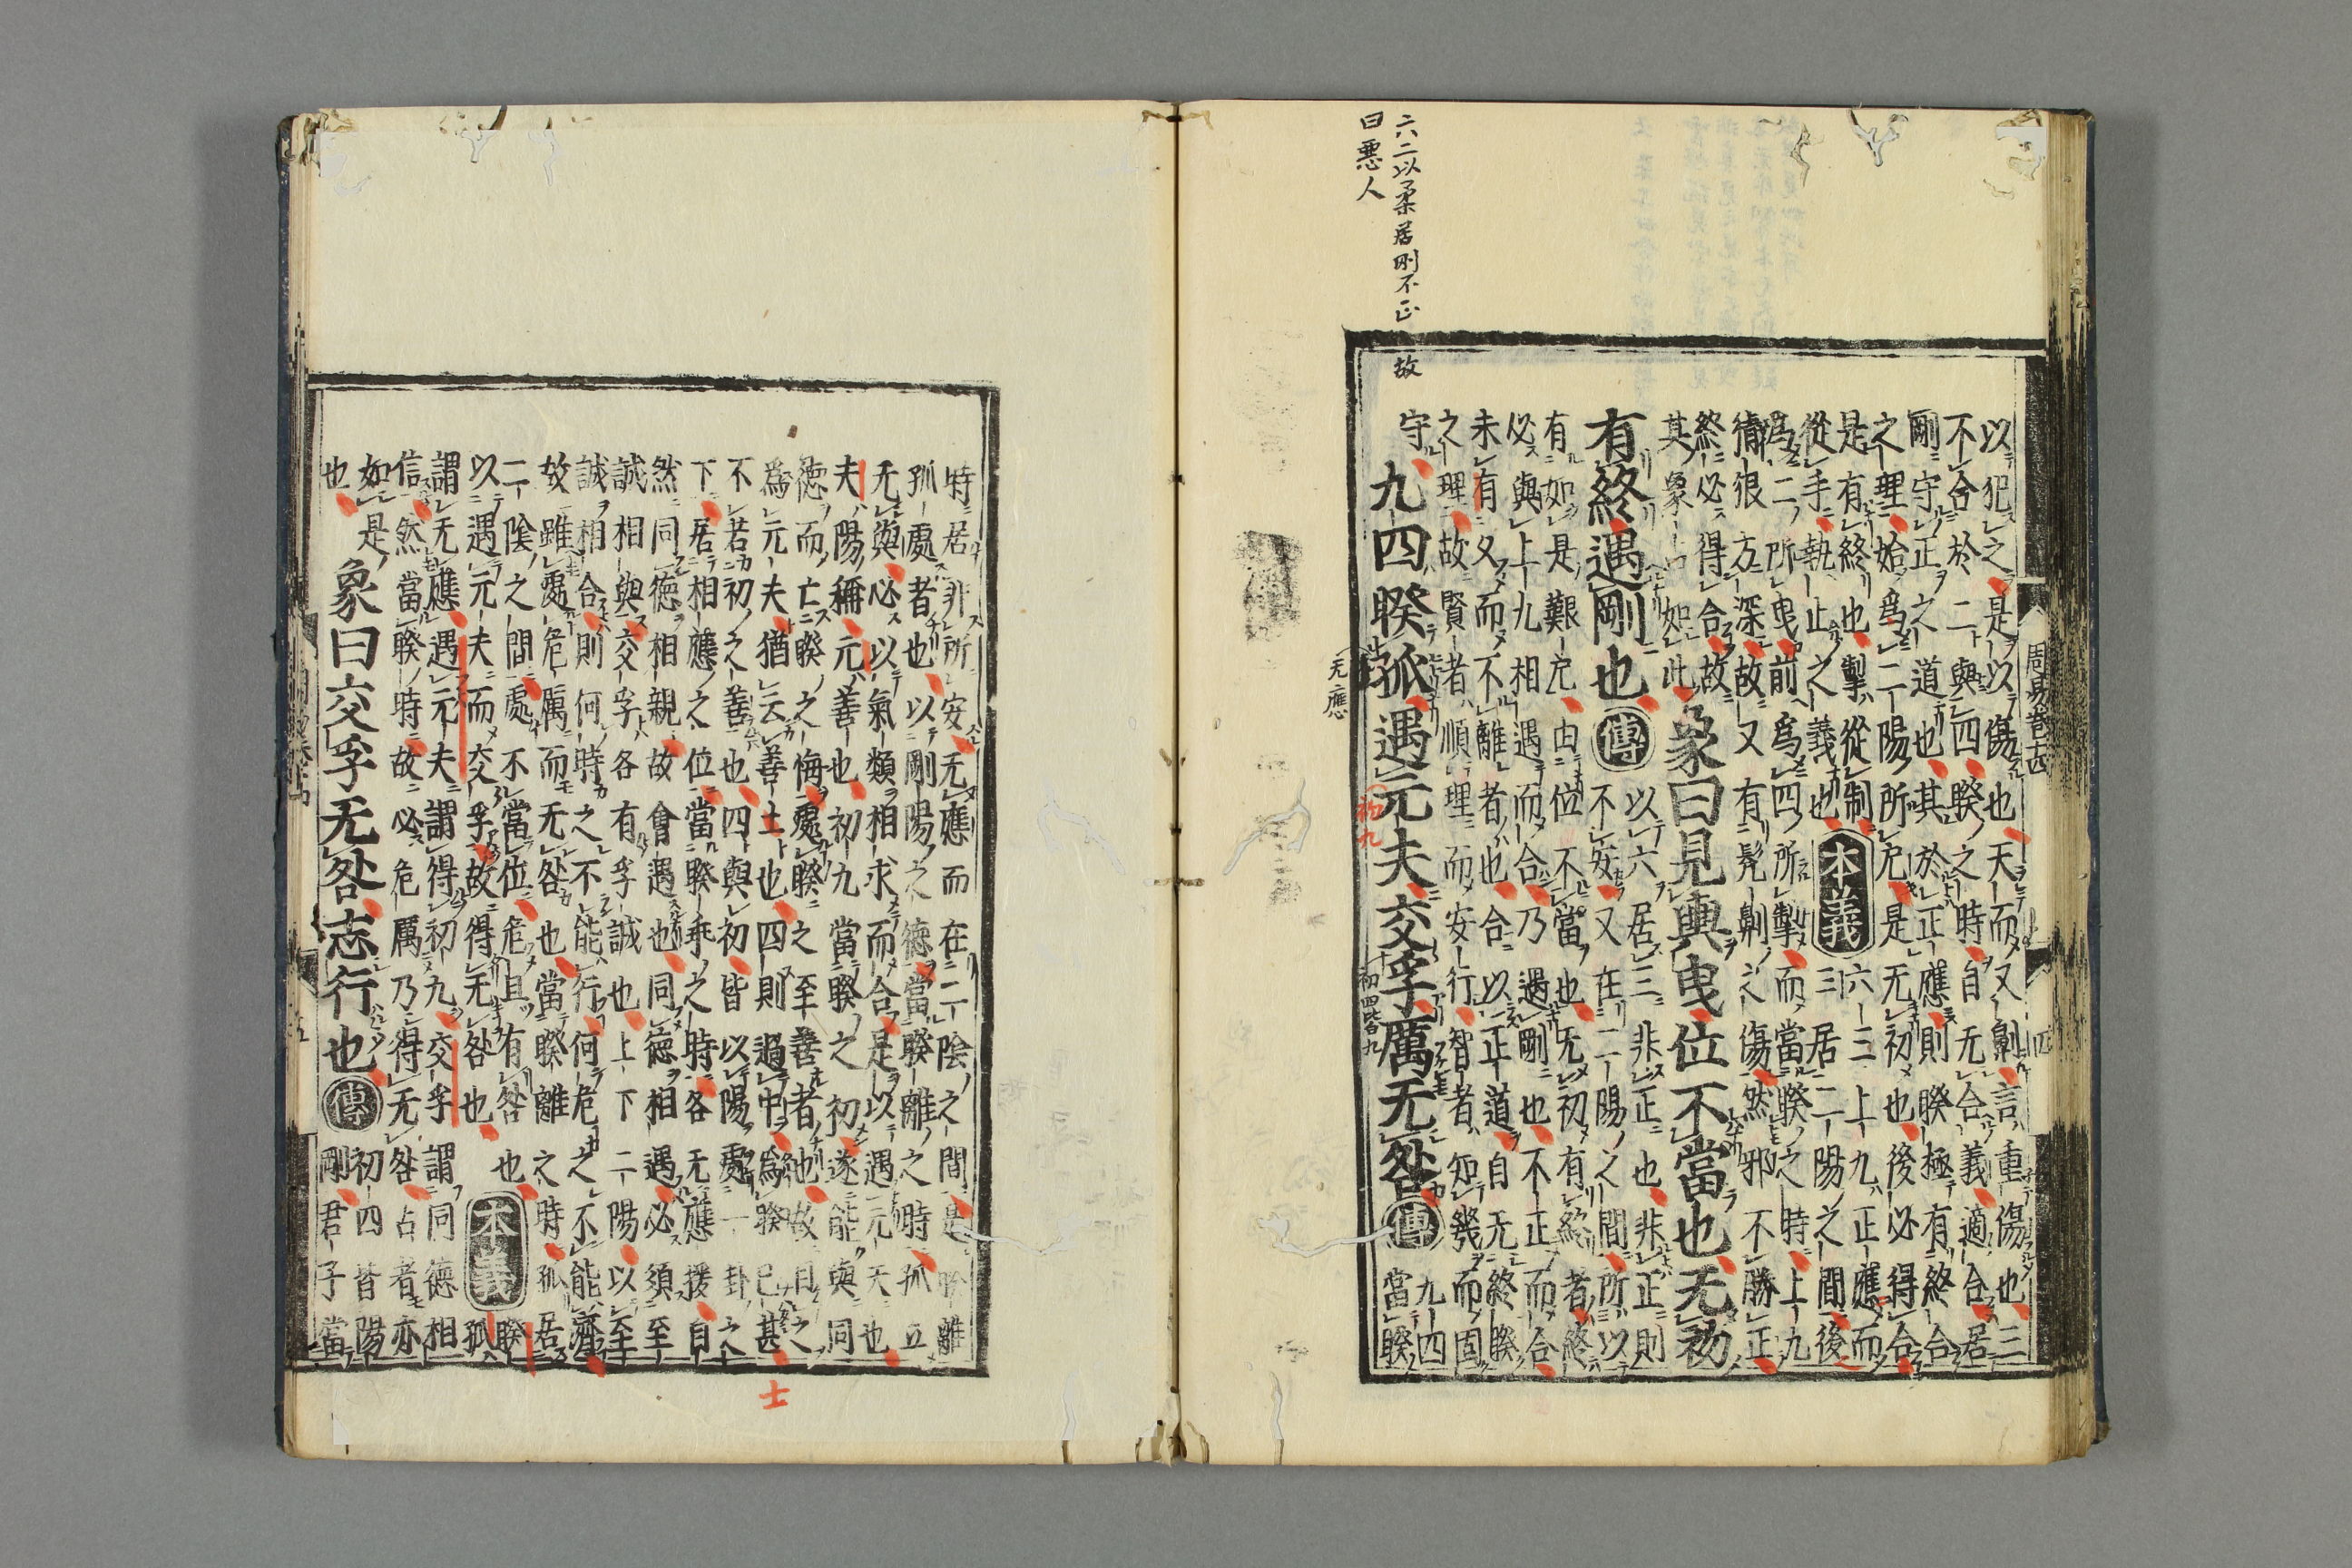 六二以柔居剛不正故
曰惡人
周易卷十四
以犯之是以傷也天而又劓言重傷也三
不合於二與四睽之時自无合義適合居
剛守正之道也其於正應則睽極有終合
之理始爲二陽所戹是无初也後必得合
是有終也掣從制
從手執止之義也本義六三上九正應而
爲二所曳前爲四所掣而當睽之時上九
猜狠方深故又有髡劓之傷然邪不勝正
終必得合故
其象占如此象曰見輿曳位不當也无初
有終遇剛也傳以六居三非正也非正則
不安又在二陽之間所以
有如是艱戹由位不當也无初有終者終
必與上九相遇而合乃遇剛也不正而合
未有久而不離者也合以正道自无終睽
之理故賢者順理而安行智者知幾而固
守九四睽孤遇元夫交孚厲无咎傳九四
當睽
无應
初九
初四皆九
時居非所安无應而在二陰之間是睽離
孤處者也以剛陽之德當睽離之時孤立
无與必以氣類相求而合是以遇元夫也
夫陽稱元善也初九當睽之初遂能與同
德而亡睽之悔處睽之至善者也故目之
爲元夫猶云善士也四則過中爲睽已甚
不若初之善也四與初皆以陽處一卦之
下居相應之位當睽乖之時各无應援自
然同德相親故會遇也同德相遇必須至
誠相與交孚各有孚誠也上下二陽以至
誠相合則何時之不能行何危之不能濟
故雖處危厲而无咎也當睽離之時孤居
二陰之間處不當位危且有咎也
以遇元夫而交孚故得无咎也本義睽孤
謂无應遇元夫謂得初九交孚謂同德相
信然當睽時故必危厲乃得无咎占者亦
如是
也象曰交孚无咎志行也傳初四皆陽
剛君子當
士